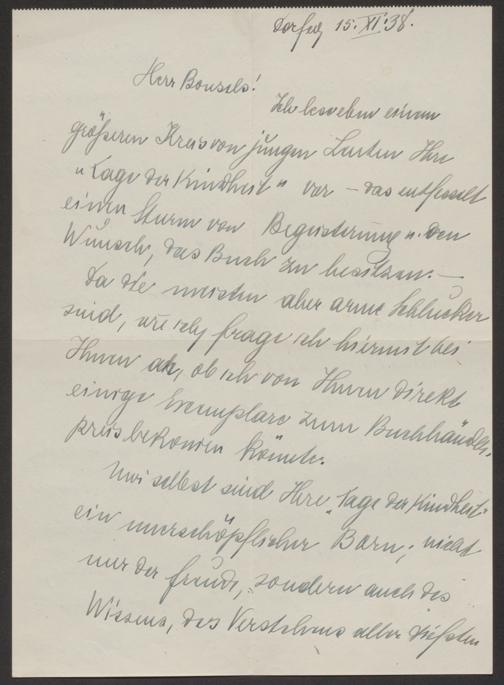 15. XI. 38.
Herr Bonsels!
Ich lese eben einem
größeren Kreis von jungen Leuten Ihre
"Tage der Kindheit" vor – das entfesselt
einen Sturm von Begeisterung u. den
Wunsch, das Buch zu besitzen. –
Da die meisten aber arme Schlucker
sind, wie ich, frage ich hiermit bei
Ihnen an, ob ich von Ihnen direkt
einige Exemplare zum Buchhändler-
preis bekommen könnte.
Mir selbst sind Ihre "Tage der Kindheit"
ein unerschöpflicher Born; nicht
nur der Freude, sondern auch des
Wissens, des Verstehens aller tiefsten